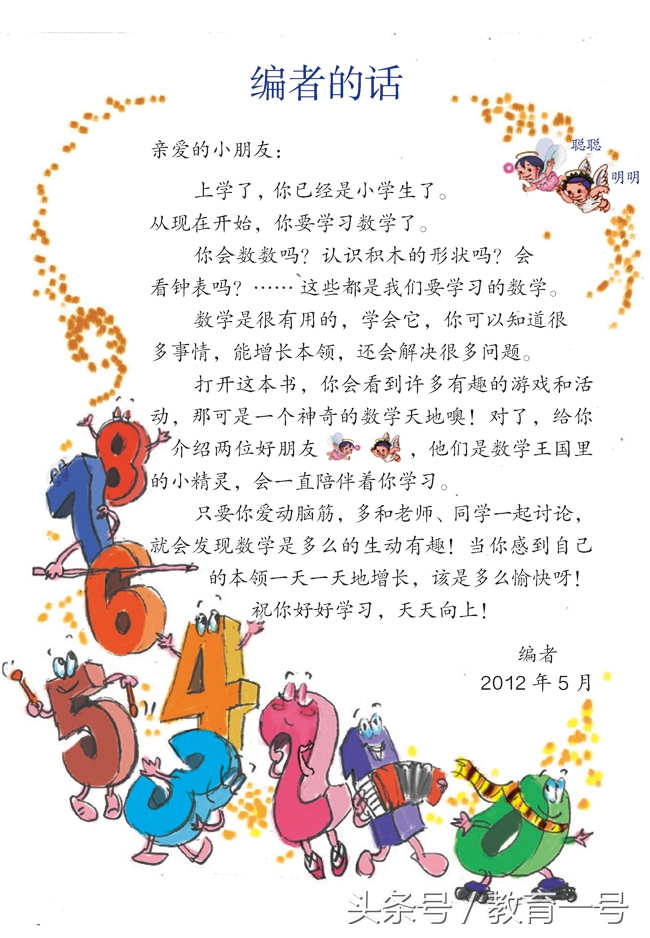 编者的话
聪聪
明明
亲爱的小朋友：
上学了，你已经是小学生了。
从现在开始，你要学习数学了。
你会数数吗？认识积木的形状吗？会
看钟表吗？……这些都是我们要学习的数学。
数学是很有用的，学会它，你可以知道很
多事情，能增长本领，还会解决很多问题。
打开这本书，你会看到许多有趣的游戏和活
动，那可是一个神奇的数学天地噢！对了，给你
介绍两位好朋友，他们是数学王国里
的小精灵，会一直陪伴着你学习。
只要你爱动脑筋，多和老师、同学一起讨论，
就会发现数学是多么的生动有趣！当你感到自己
的本领一天一天地增长，该是多么愉快呀！
祝你好好学习，天天向上！
编者
2012 年 5 月
8
7
6
5
4
3
2
1
0
头条号 / 教育一号